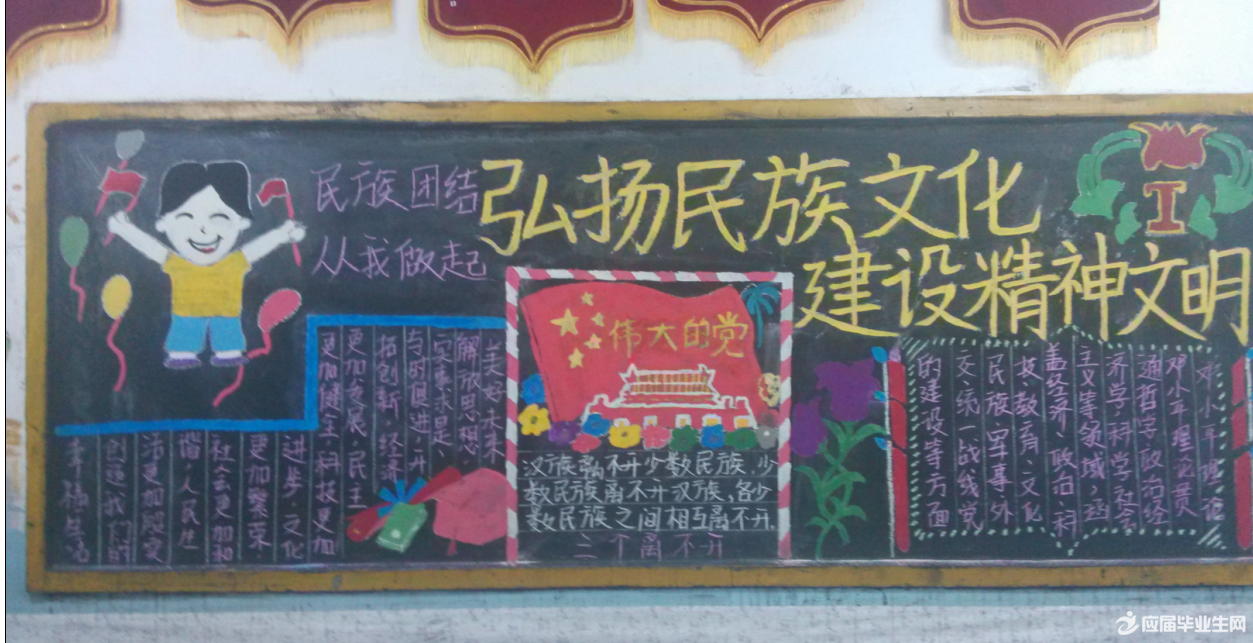 民族团结
从我做起
弘扬民族文化
建设精神文明
美好未来
解放思想、
实事求是、
与时俱进、开
拓创新，经济
更加发展、民主
更加健全、科技更加
进步、文化
更加繁荣
社会更加和
谐、人民生
活更加殷实
创造我们的
幸福生活
伟大的党
汉族离不开少数民族，少
数民族离不开汉族，各少
数民族之间相互离不开，
三个离不开
邓小平理论
邓小平理论贯
通哲学政治经
济学科学社会
主义等领域，涵
盖经济、政治、科
技、教育、文化
民族、军事、外
交、统一战线、党
的建设等方面
应届毕业生网